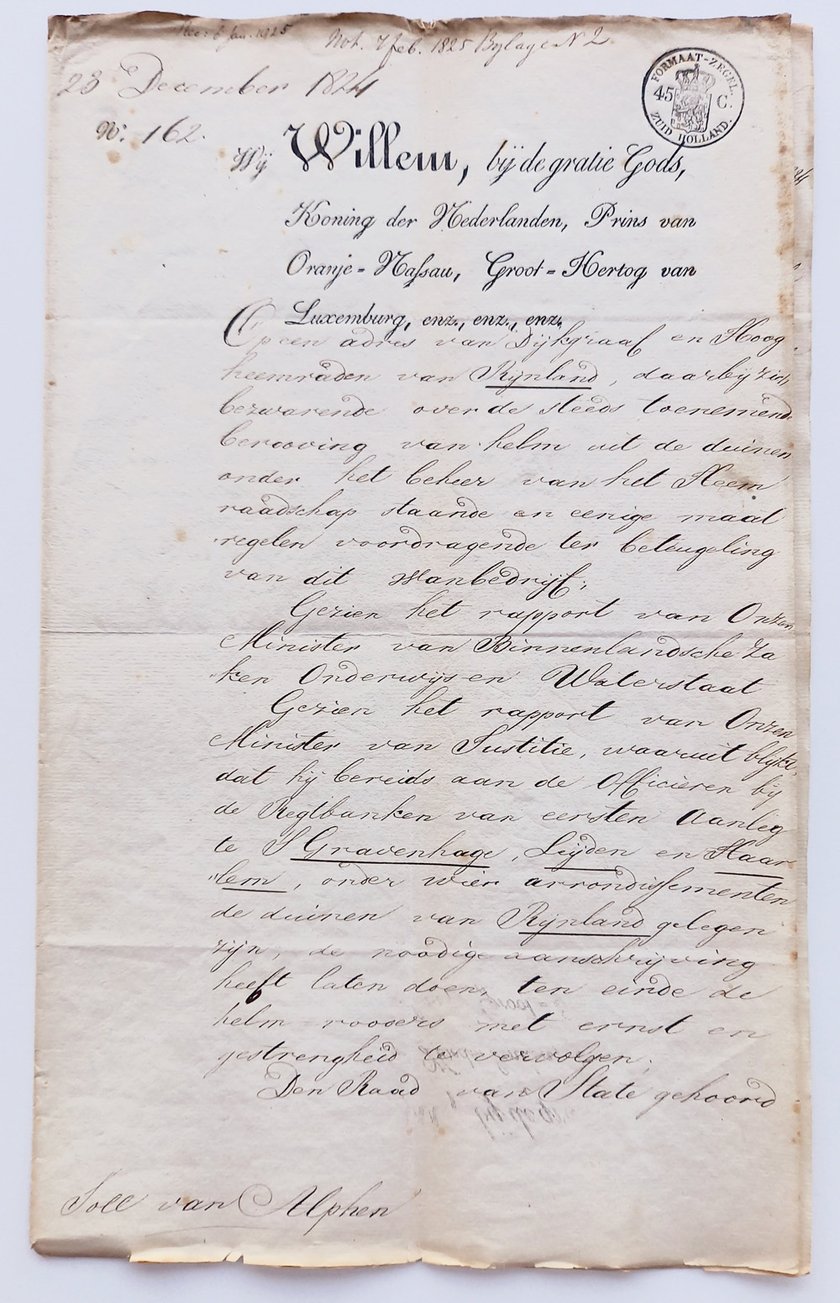 Rec: 6 Jan. 1825
Not. 7 feb. 1825 Bylage N 2
28 December 1824
N°. 162.
FORMAAT-ZEGEL.
45 C.
ZUID HOLLAND.
Wij Willem, bij de gratie Gods,
Koning der Nederlanden, Prins van
Oranje-Nassau, Groot-Hertog van
Luxemburg, enz., enz., enz.
Op een adres van Dijkgraaf en Hoog
heemraden van Rijnland, daarbij zich
bezwarende over de steeds toenemende
berooving van helm uit de duinen
onder het beheer van het Heem
raadschap staande en eenige maat
regelen voordragende ter beteugeling
van dit wanbedrijf;
Gezien het rapport van Onzen
Minister van Binnenlandsche Za
ken Onderwijs en Waterstaat
Gezien het rapport van Onzen
Minister van Justitie, waaruit blijkt,
dat hij bereids aan de Officieren bij
de Regtbanken van eersten Aanleg
te S Gravenhage, Leijden en Haar
lem, onder wier arrondissementen
de duinen van Rijnland gelegen
zijn, de noodige aanschrijving
heeft laten doen, ten einde de
helm roovers met ernst en
gestrengheid te vervolgen;
Den Raad van State gehoord
van Alphen